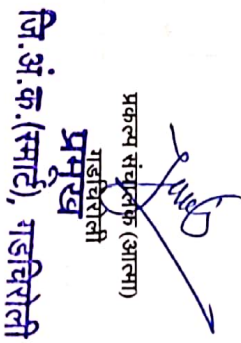 प्रकल्प संचालक (आत्मा)
गडचिरोली
प्रमूख
जि.अं.क.(स्मार्ट), गडचिरोली